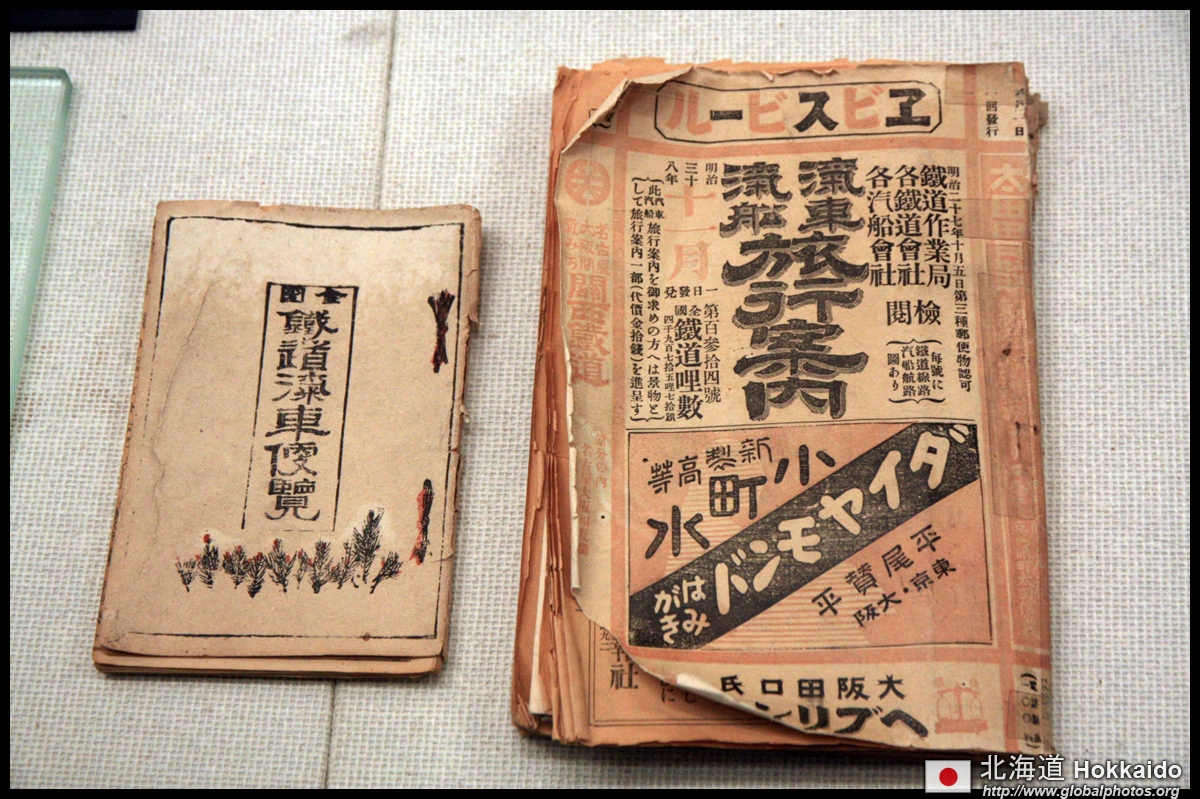 全國
鐵道滊車便覽
ヱビスビール
一回發行
明治二十七年十月五日第三種郵便物認可
鐵道作業局
各鐵道會社
各汽船會社
檢閱
（每號に
鐵道線路
汽船航路
圖あり）
滊車
滊船
旅行案內
明治
三十
八年
十一月
一日發兌
第百參拾四號
全國
鐵道哩數
四千九百七拾五哩七拾鎖
（此汽車汽船旅行案內を御求めの方へは景物と
して旅行案內一部（代價金拾錢）を進呈す）
關西鐵道
新製
高等
小町水
ダイヤモンド
はみがき
平尾贊平
東京・大阪
大阪田口氏
ヘブリン
社
北海道 Hokkaido
http://www.globalphotos.org